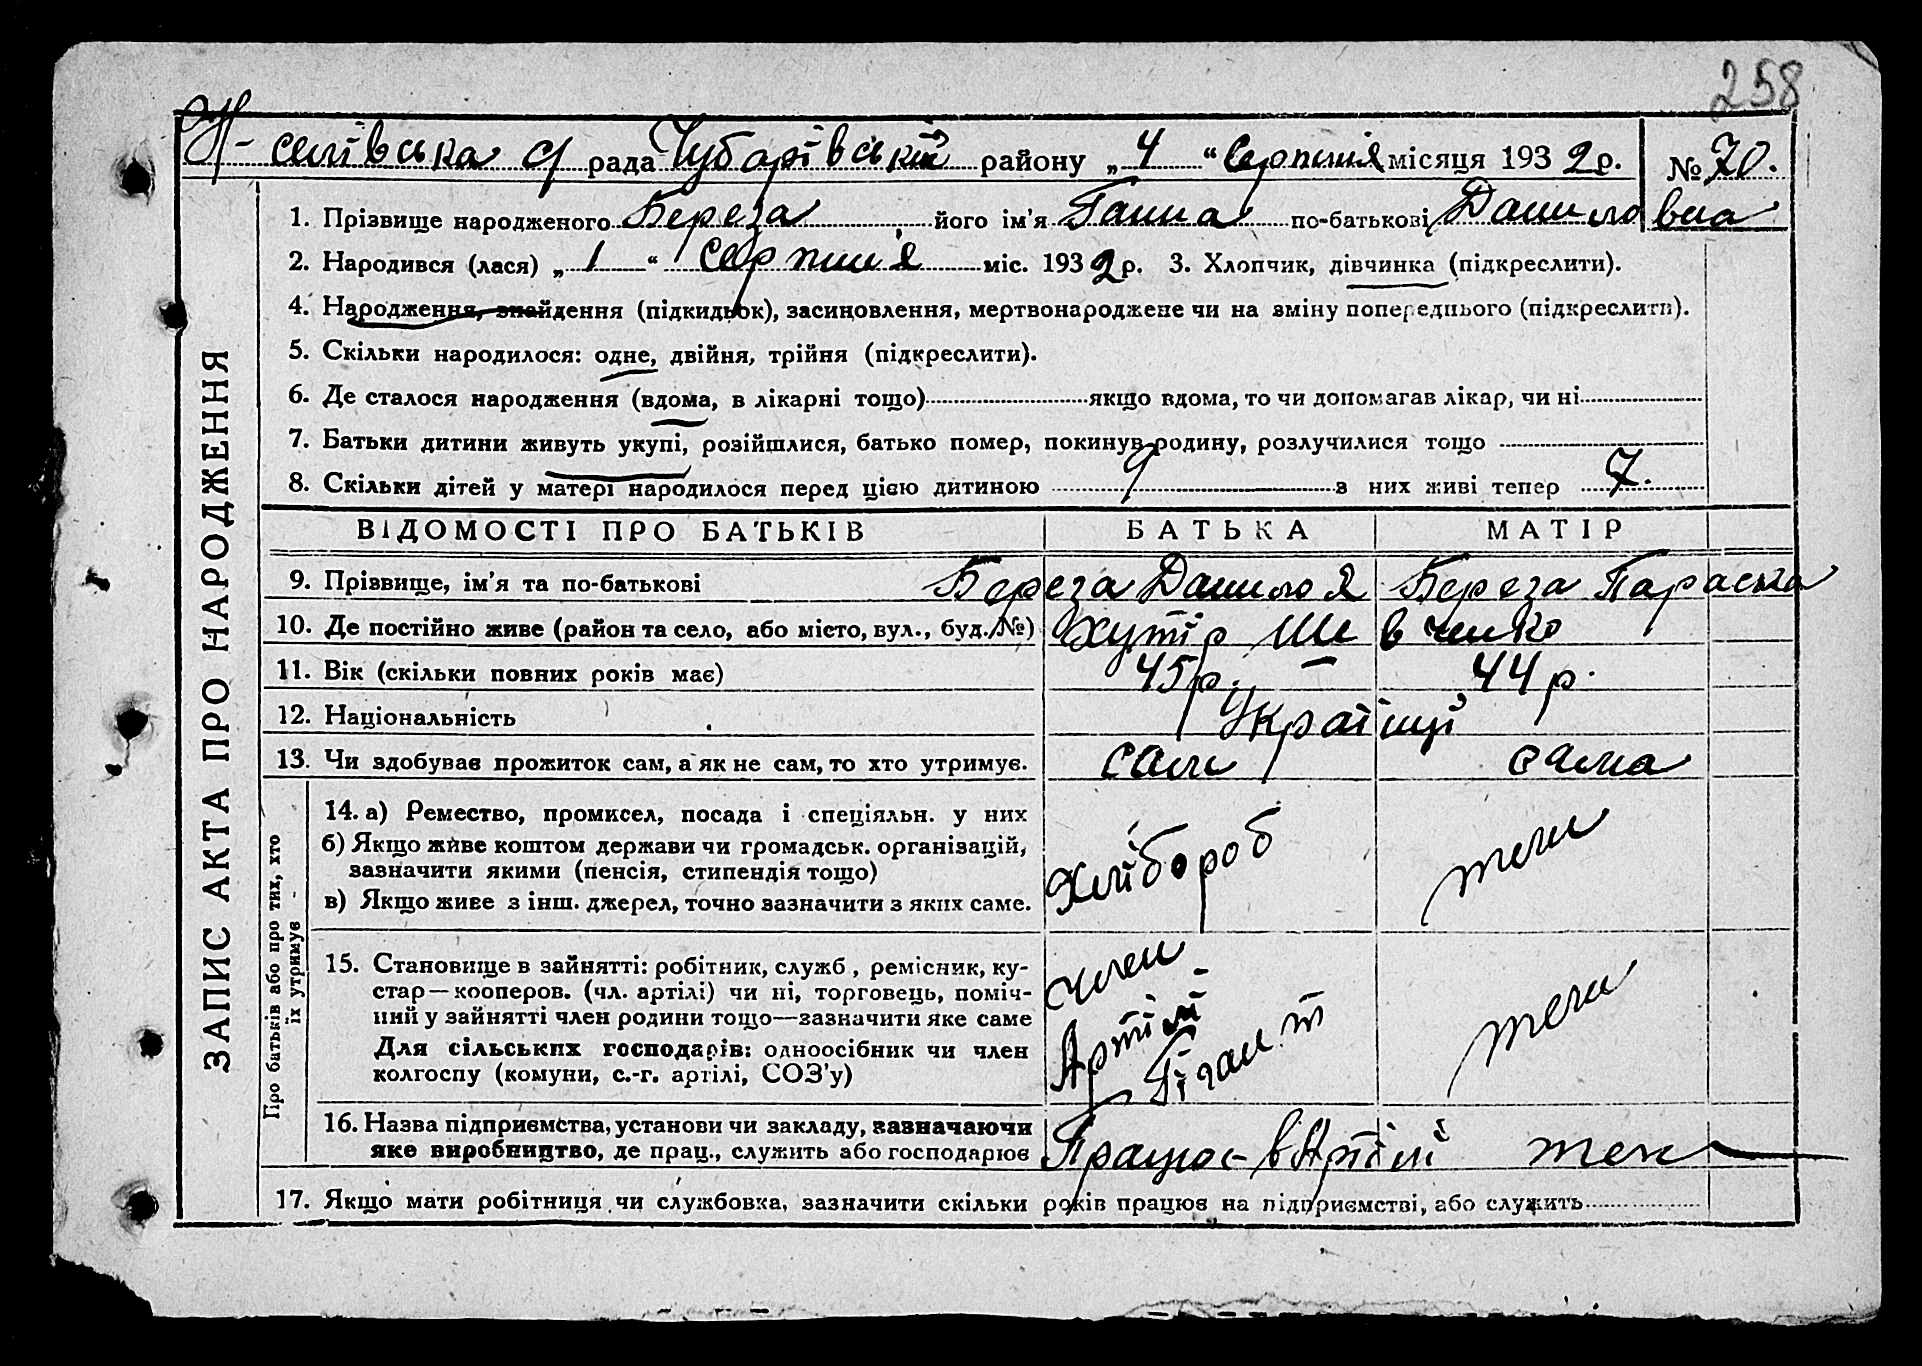 258
Н-селівська с/ рада Чубарівський району „ 4 “ Серпня місяця 1932 р. № 70.
1. Прізвище народженого Береза його ім'я Ганна по-батькові Даниловна
2. Народився (лася) „ 1 “ серпня міс. 1932 р. 3. Хлопчик, дівчинка (підкреслити).
4. Народження, знайдення (підкидьок), засиновлення, мертвонароджене чи на зміну попереднього (підкреслити).
5. Скільки народилося: одне, двійня, трійня (підкреслити).
6. Де сталося народження (вдома, в лікарні тощо) якщо вдома, то чи допомагав лікар, чи ні
7. Батьки дитини живуть укупі, розійшлися, батько помер, покинув родину, розлучилися тощо
8. Скільки дітей у матері народилося перед цією дитиною 9 з них живі тепер 7.
ЗАПИС АКТА ПРО НАРОДЖЕННЯ
ВІДОМОСТІ ПРО БАТЬКІВ БАТЬКА МАТІР
9. Прізвище, ім'я та по-батькові Береза Данило Я Береза Параска
10. Де постійно живе (район та село, або місто, вул., буд. №) Хутір Шевченко
11. Вік (скільки повних років має) 45р. – 44р.
12. Національність Українці
13. Чи здобував прожиток сам, а як не сам, то хто утримує. сам сама
Про батьків або про тих, хто
їх утримує
14. а) Ремество, промисел, посада і спеціяльн. у них
б) Якщо живе коштом держави чи громадськ. організацій,
зазначити якими (пенсія, стипендія тощо)
в) Якщо живе з інш. джерел, точно зазначити з яких саме.
Хлібороб теж
15. Становище в зайнятті: робітник, служб, ремісник, ку-
стар—кооперов. (чл. артілі) чи ні, торговець, поміч-
ний у зайнятті член родини тощо—зазначити яке саме
Для сільських господарів: одноосібник чи член
колгоспу (комуни, с.-г. артілі, СОЗ'у)
член
Артілі
Гігант
теж
16. Назва підприємства, установи чи закладу, зазначаючи
яке виробництво, де прац., служить або господарює
Працює в Артілі теж
17. Якщо мати робітниця чи службовка, зазначити скільки років працює на підприємстві, або служить